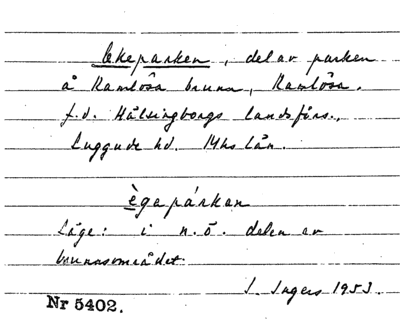 Ekeparken, del av parken
å Ramlösa brunn, Ramlösa.
f.d. Hälsingborgs landsförs.,
Luggude hd. Mhs län.
ègapárken
Läge: i n.ö. delen av
brunnsområdet.
I. Ingers 1953.
Nr 5402.